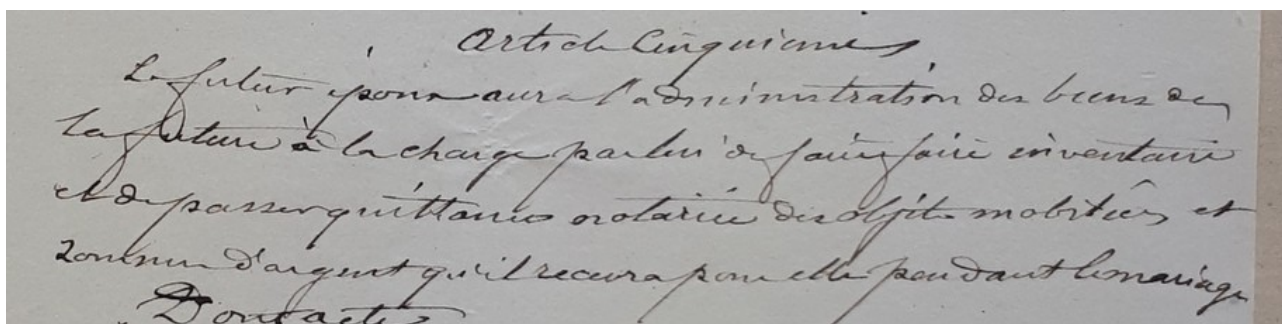 Article Cinquième
Le futur époux aura l'administration des biens de
la future à la charge par lui de faire faire inventaire
et de passer quittance notariée des objets mobiliers et
sommes d'argent qu'il recevra pour elle pendant le mariage
Dont acte